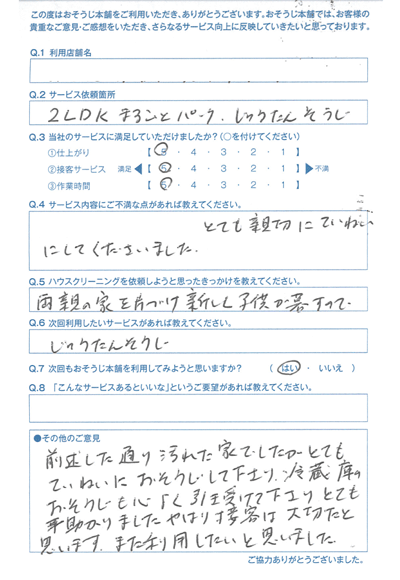 この度はおそうじ本舗をご利用いただき、ありがとうございます。おそうじ本舗では、お客様の
貴重なご意見・ご感想をいただき、さらなるサービス向上に反映していきたいと思っております。
Q.1 利用店舗名
Q.2 サービス依頼箇所
2LDK まるごとパック. じゅうたんそうじ
Q.3 当社のサービスに満足していただけましたか?(○を付けてください)
①仕上がり 【 5 ・ 4 ・ 3 ・ 2 ・ 1 】
②接客サービス 満足 ◀【 5 ・ 4 ・ 3 ・ 2 ・ 1 】▶ 不満
③作業時間 【 5 ・ 4 ・ 3 ・ 2 ・ 1 】
Q.4 サービス内容にご不満な点があれば教えてください。
とても親切にていねい
にしてくださいました.
Q.5 ハウスクリーニングを依頼しようと思ったきっかけを教えてください。
両親の家を片づけ新しく子供が暮すので
Q.6 次回利用したいサービスがあれば教えてください。
じゅうたんそうじ
Q.7 次回もおそうじ本舗を利用してみようと思いますか? ( はい ・ いいえ )
Q.8 「こんなサービスあるといいな」というご要望があれば教えてください。
●その他のご意見
前述した通り汚れた家でしたがとても
ていねいにおそうじして下さり、冷蔵庫の
おそうじも心よく引き受けて下さりとても
手助かりましたやはり接客は大切だと
思います. また利用したいと思いました.
ご協力ありがとうございました。